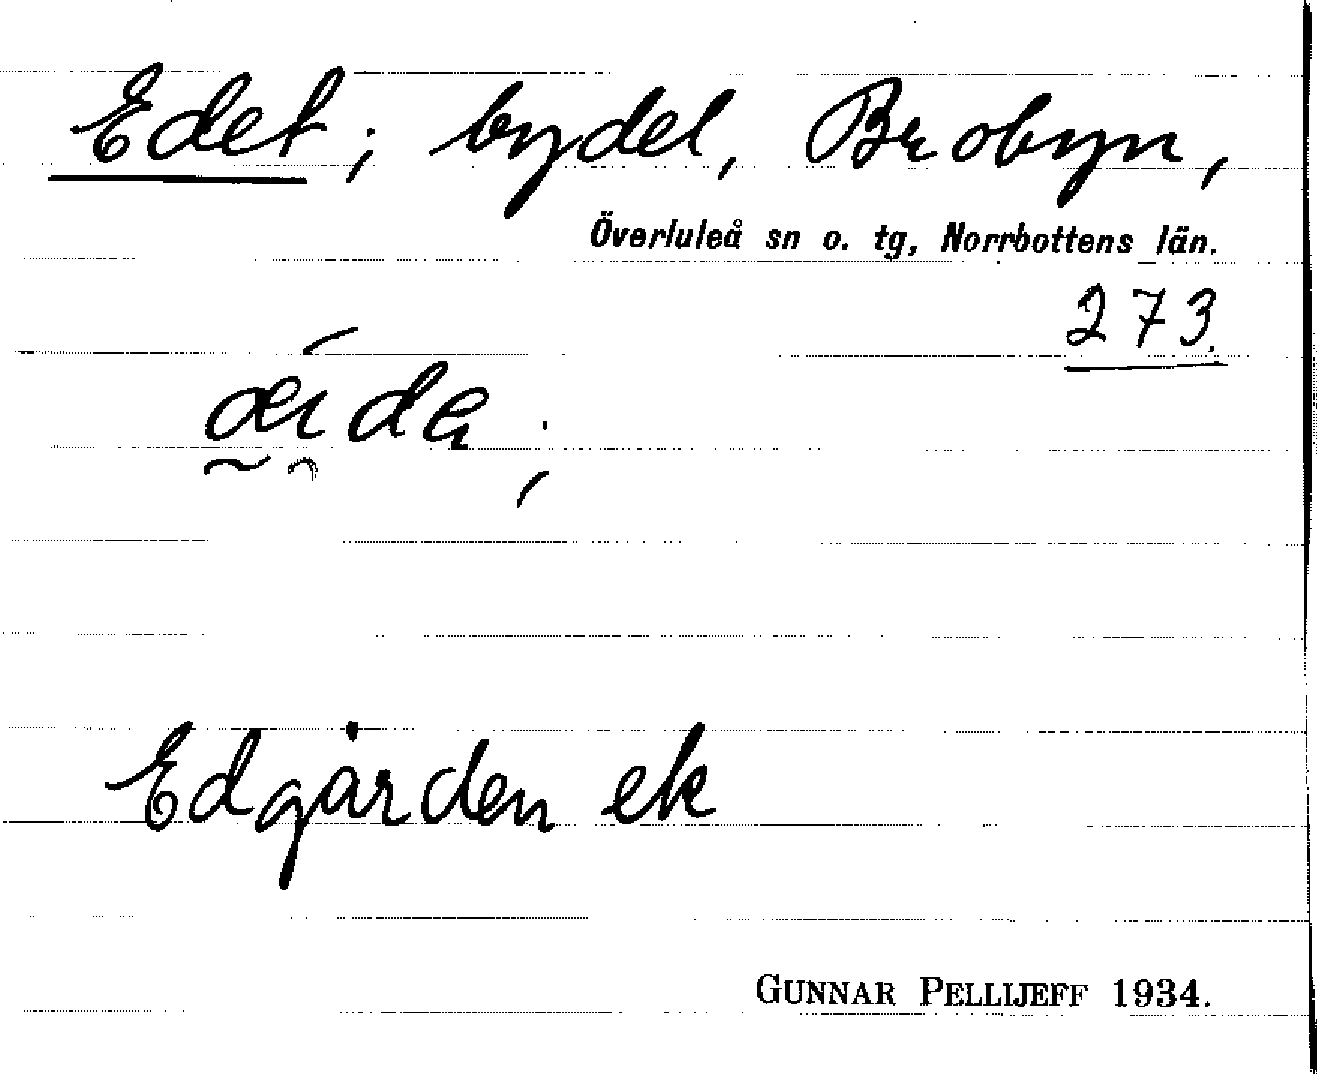 Edet; bydel, Brobyn,
Överluleå sn o. tg, Norrbottens län.
273.
Edgården ek
GUNNAR PELLIJEFF 1934.